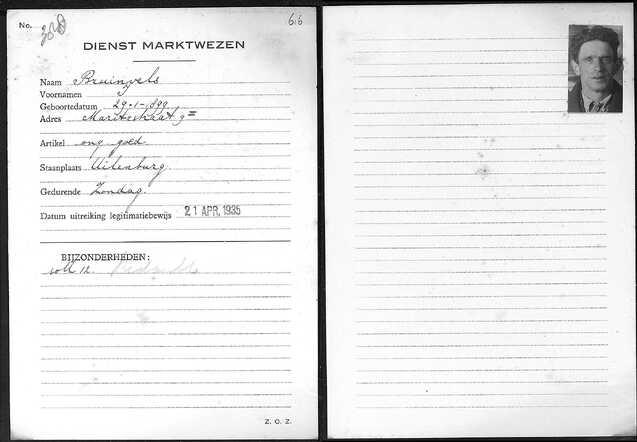 No. 66
DIENST MARKTWEZEN
Naam Bruinvels
Voornamen
Geboortedatum 29-1-899
Adres Maritzstraat 9=
Artikel ong goed
Staanplaats Uilenburg.
Gedurende Zondag.
Datum uitreiking legitimatiebewijs 21 APR. 1935
BIJZONDERHEDEN:
voll 12.
Z. O. Z.